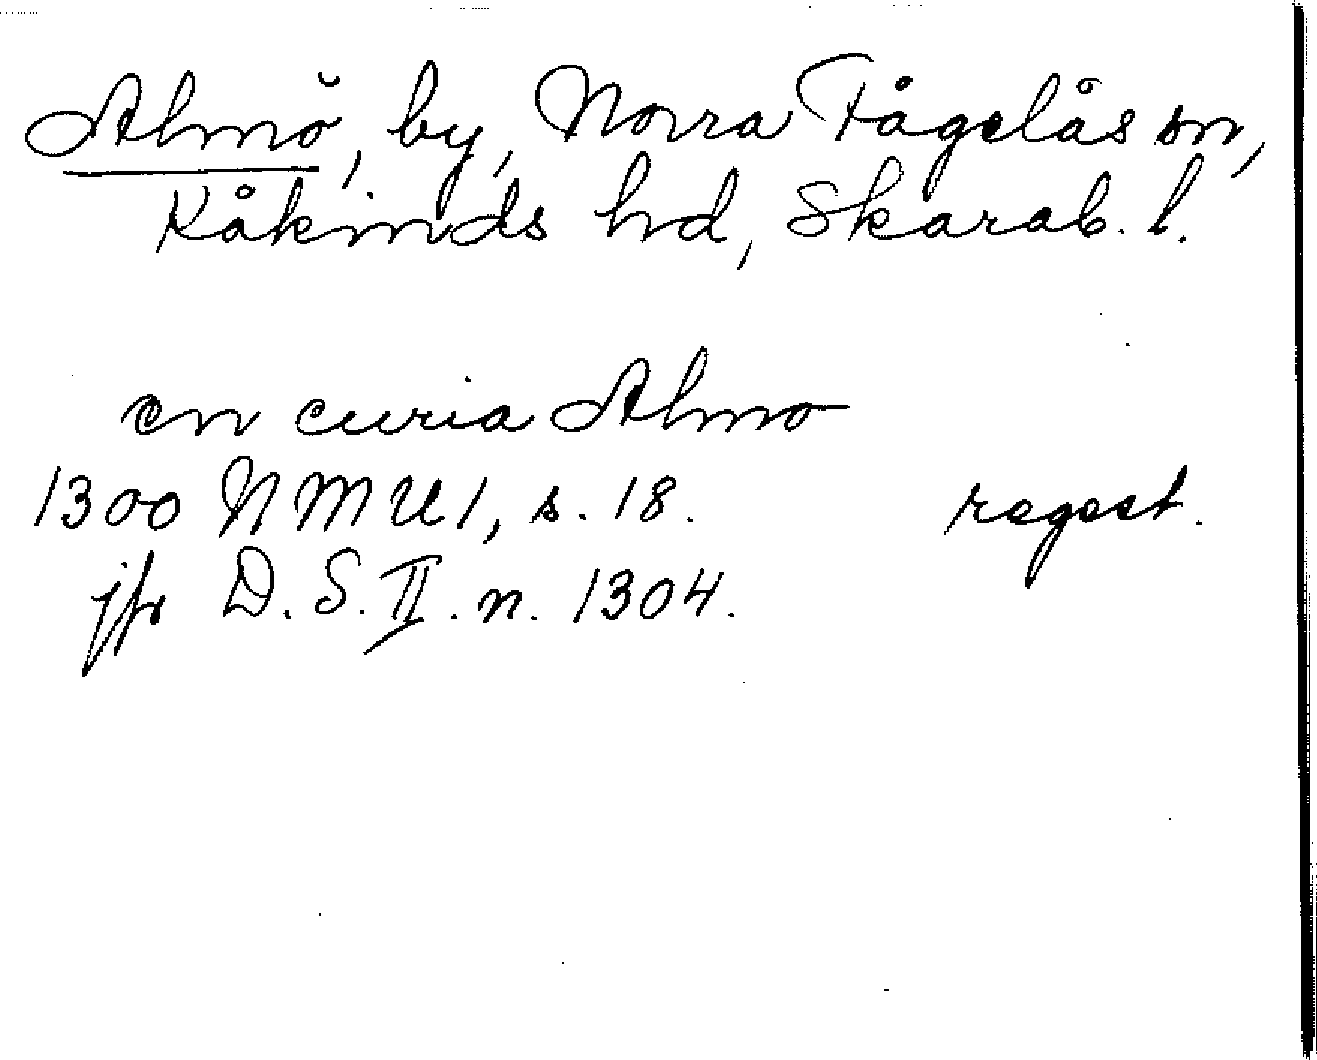 Almö, by, Norra Fågelås sn,
Kåkinds hd, Skarab. l.
en curia Almo
1300 NMU1, s. 18. regest.
jfr D. S. II. n. 1304.